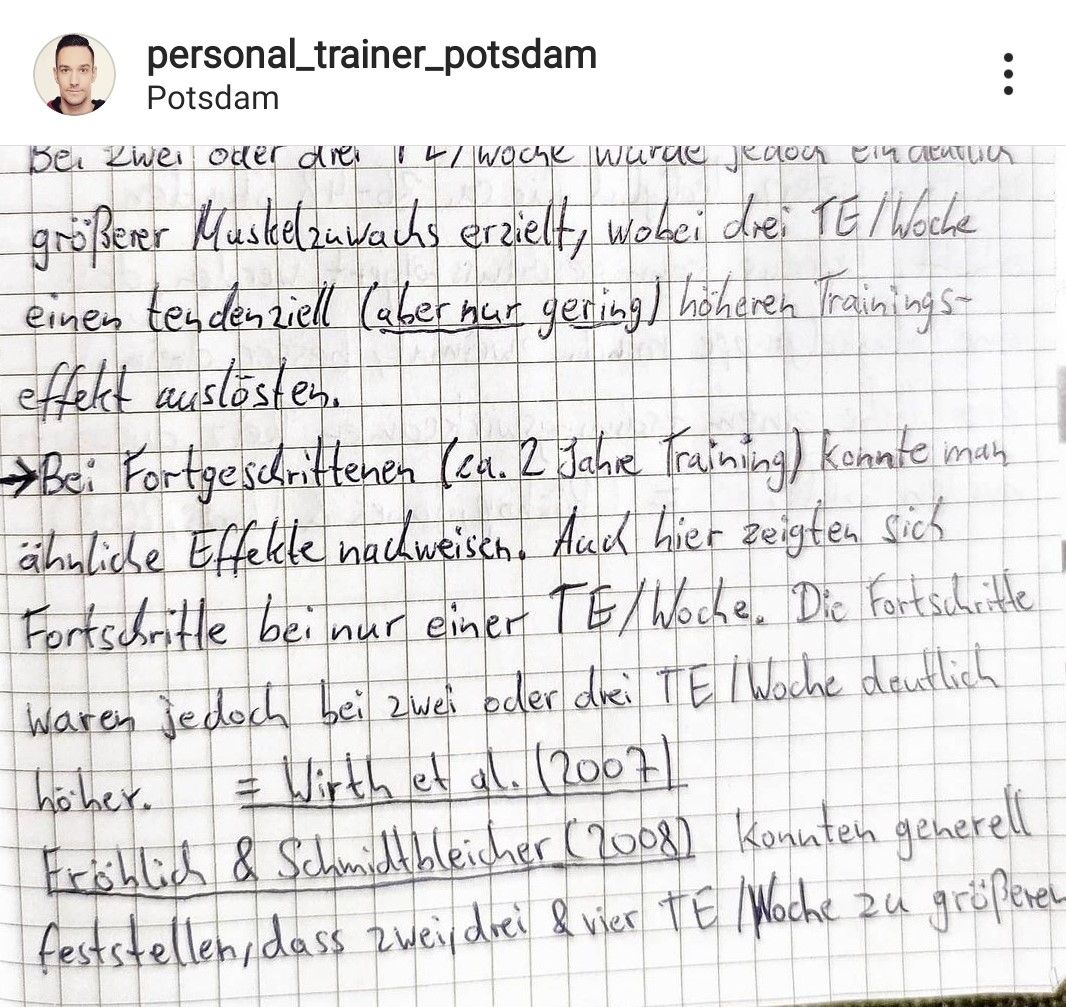 personal_trainer_potsdam
Potsdam
Bei zwei oder drei TE/Woche wurde jedoch ein deutlich
größerer Muskelzuwachs erzielt, wobei drei TE/Woche
einen tendenziell (aber nur gering) höheren Trainings-
effekt auslösten.
→Bei Fortgeschrittenen (ca. 2 Jahre Training) konnte man
ähnliche Effekte nachweisen. Auch hier zeigten sich
Fortschritte bei nur einer TE/Woche. Die Fortschritte
waren jedoch bei zwei oder drei TE/Woche deutlich
höher. = Wirth et al. (2007)
Fröhlich & Schmidtbleicher (2008) konnten generell
feststellen, dass zwei, drei & vier TE/Woche zu größeren